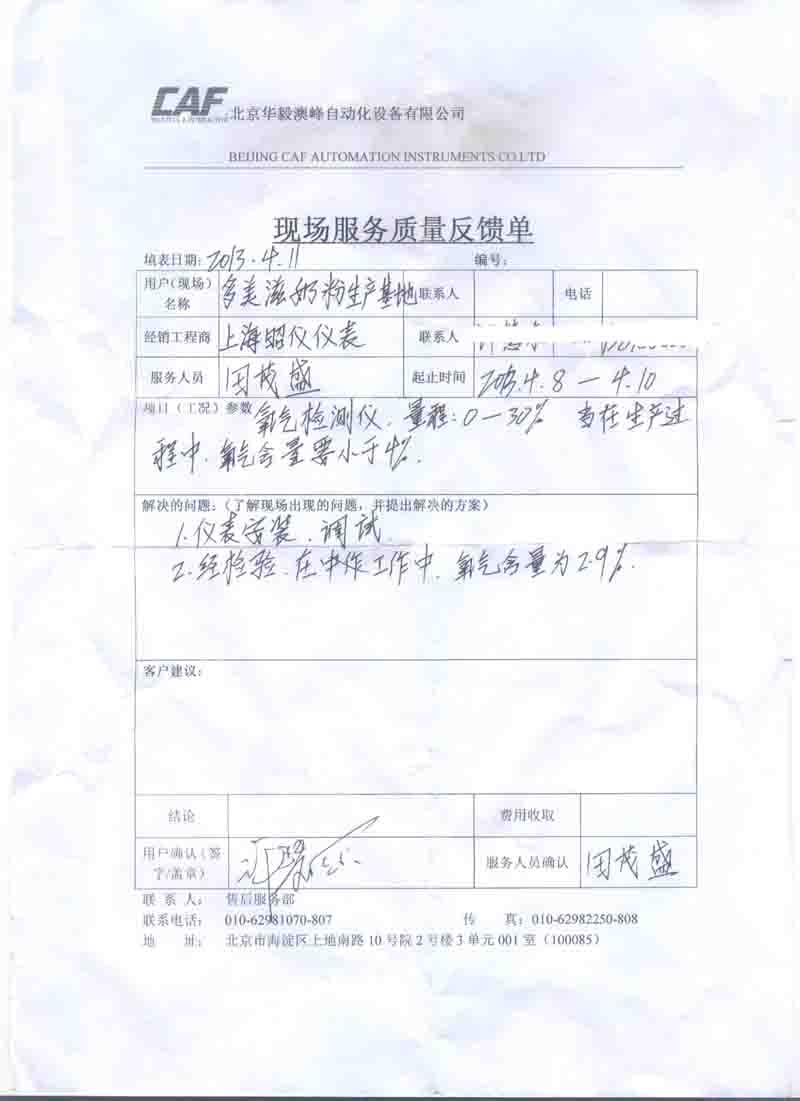 CAF
北京华毅澳峰自动化设备有限公司
BEIJING CAF AUTOMATION INSTRUMENTS CO.LTD
现场服务质量反馈单
填表日期: 2013.4.11 编号:
用户(现场)名称 多美滋奶粉生产基地 联系人 电话
经销工程商 上海昭仪仪表 联系人
服务人员 田茂盛 起止时间 2013.4.8—4.10
项目(工况)参数 氧气检测仪.量程:0—30% 当在生产过
程中.氧气含量要小于4%.
解决的问题:(了解现场出现的问题,并提出解决的方案)
1.仪表安装.调试
2.经检验.在中作工作中.氧气含量为2.9%.
客户建议:
结论 费用收取
用户确认(签字/盖章) 服务人员确认 田茂盛
联系人: 售后服务部
联系电话: 010-62981070-807 传真: 010-62982250-808
地址: 北京市海淀区上地南路10号院2号楼3单元001室(100085)